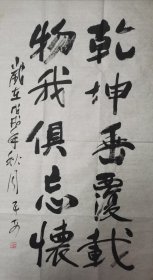 乾坤垂覆载
物我俱忘怀
岁在戊戌年秋月